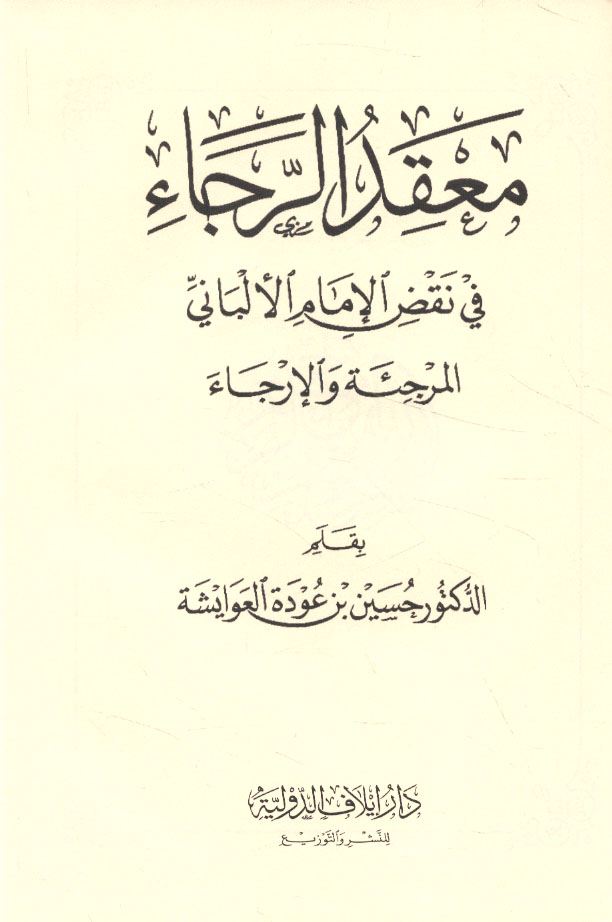 مَعْقِدُ الرَّجَاءِ
فِي نَقْضِ الإِمَامِ الأَلْبَانِيِّ
المُرْجِئَة وَالإِرْجَاءَ
بِقَلَمِ
الدُّكتُور حُسَيْن بْن عُوْدَة العَوَايِشَة
دَارُ إيلَاف الدَّوْليَّة
لِلنَّشْرِ وَالتَّوْزِيع